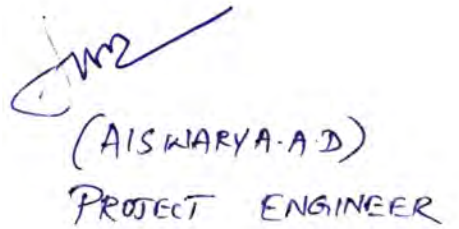 (AISWARYA.A.D)
PROJECT ENGINEER